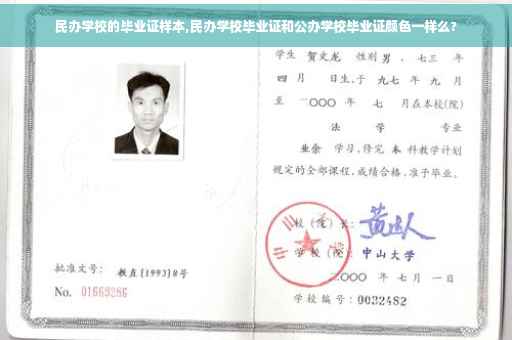 民办学校的毕业证样本,民办学校毕业证和公办学校毕业证颜色一样么?
学生 贺文龙 性别 男 、七三 年
四 月 日生,于 九七 年 九 月
至 二〇〇〇 年 七 月在本校(院)
法 学 专业
业余 学习,修完 本 科教学计划
规定的全部课程,成绩合格,准予毕业。
校(院)长:
学校(院): 中山大学
二〇〇〇 年 七 月 一 日
学校编号: 0032482
批准文号: 教直[1993]8号
No. 01669286